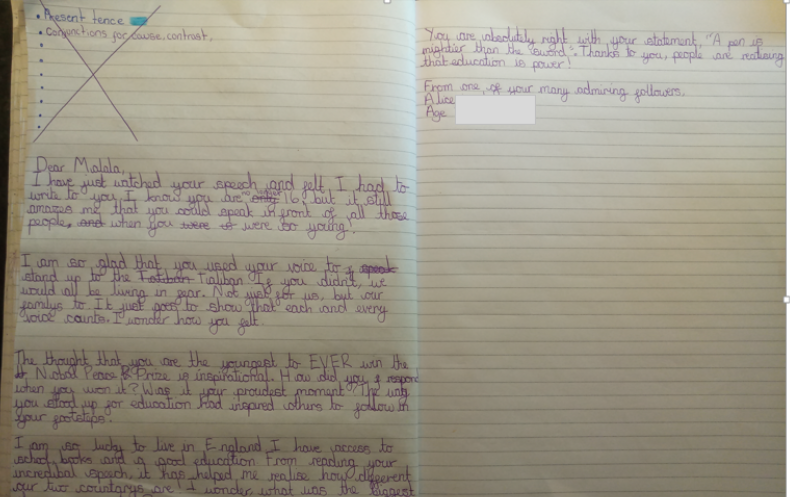 Present tence
Conjunctions for cause, contrast.
Dear Malala,
I have just watched your speech and felt I had to
write to you. I know you are "only" 16, but it still
amazes me that you could speak infront of all those
people, and when you were so young!
I am so glad that you used your voice to speak
stand up to the Taliban. If you didn't, we
would all be living in fear. Not just for us, but our
familys to. It just goes to show that each and every
voice counts. I wonder how you felt.
The thought that you are the youngest to EVER win the
Nobel Peace Prize is inspirational. How did you respond
when you won it? Was it your proudest moment? The way
you stood up for education had inspired others to follow in
your footsteps.
I am so lucky to live in England. I have access to
school, books and a good education. From reading your
incredibal speech, it has helped me realise how different
our two countarys are! I wonder what was the biggest
You are absolutely right with your statement, "A pen is
mightier than the sword". Thanks to you, people are realising
that education is power!
From one of your many admiring followers,
Alice
Age